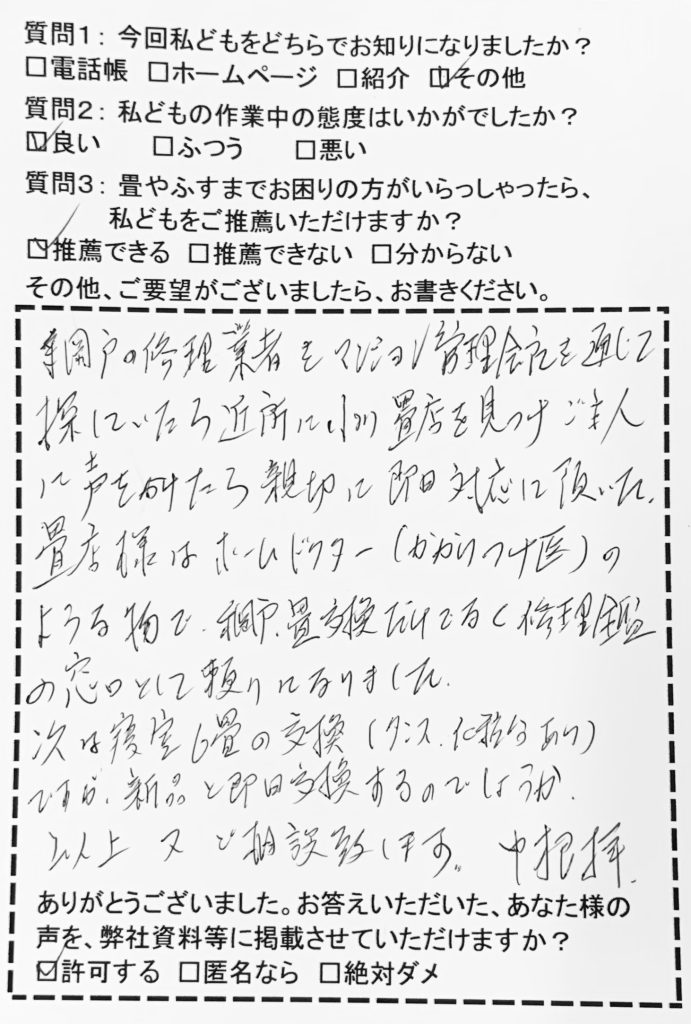 質問1：今回私どもをどちらでお知りになりましたか？
□電話帳 □ホームページ □紹介 ☑その他
質問2：私どもの作業中の態度はいかがでしたか？
☑良い □ふつう □悪い
質問3：畳やふすまでお困りの方がいらっしゃったら、
私どもをご推薦いただけますか？
☑推薦できる □推薦できない □分からない
その他、ご要望がございましたら、お書きください。
網戸の修理業者をマンション管理会社を通じて
探していたら近所に小川畳店を見つけご主人
に声をかけたら親切に即日対応に頂いた。
畳店様はホームドクター(かかりつけ医)の
ような物で、網戸、畳交換だけでなく修理全盤
の窓口として頼りになりました。
次は寝室6畳の交換(タンス、化粧台あり)
ですが、新品と即日交換するのでしょうか。
以上 又ご相談致します。 中根拝
ありがとうございました。お答えいただいた、あなた様の
声を、弊社資料等に掲載させていただけますか？
☑許可する □匿名なら □絶対ダメ